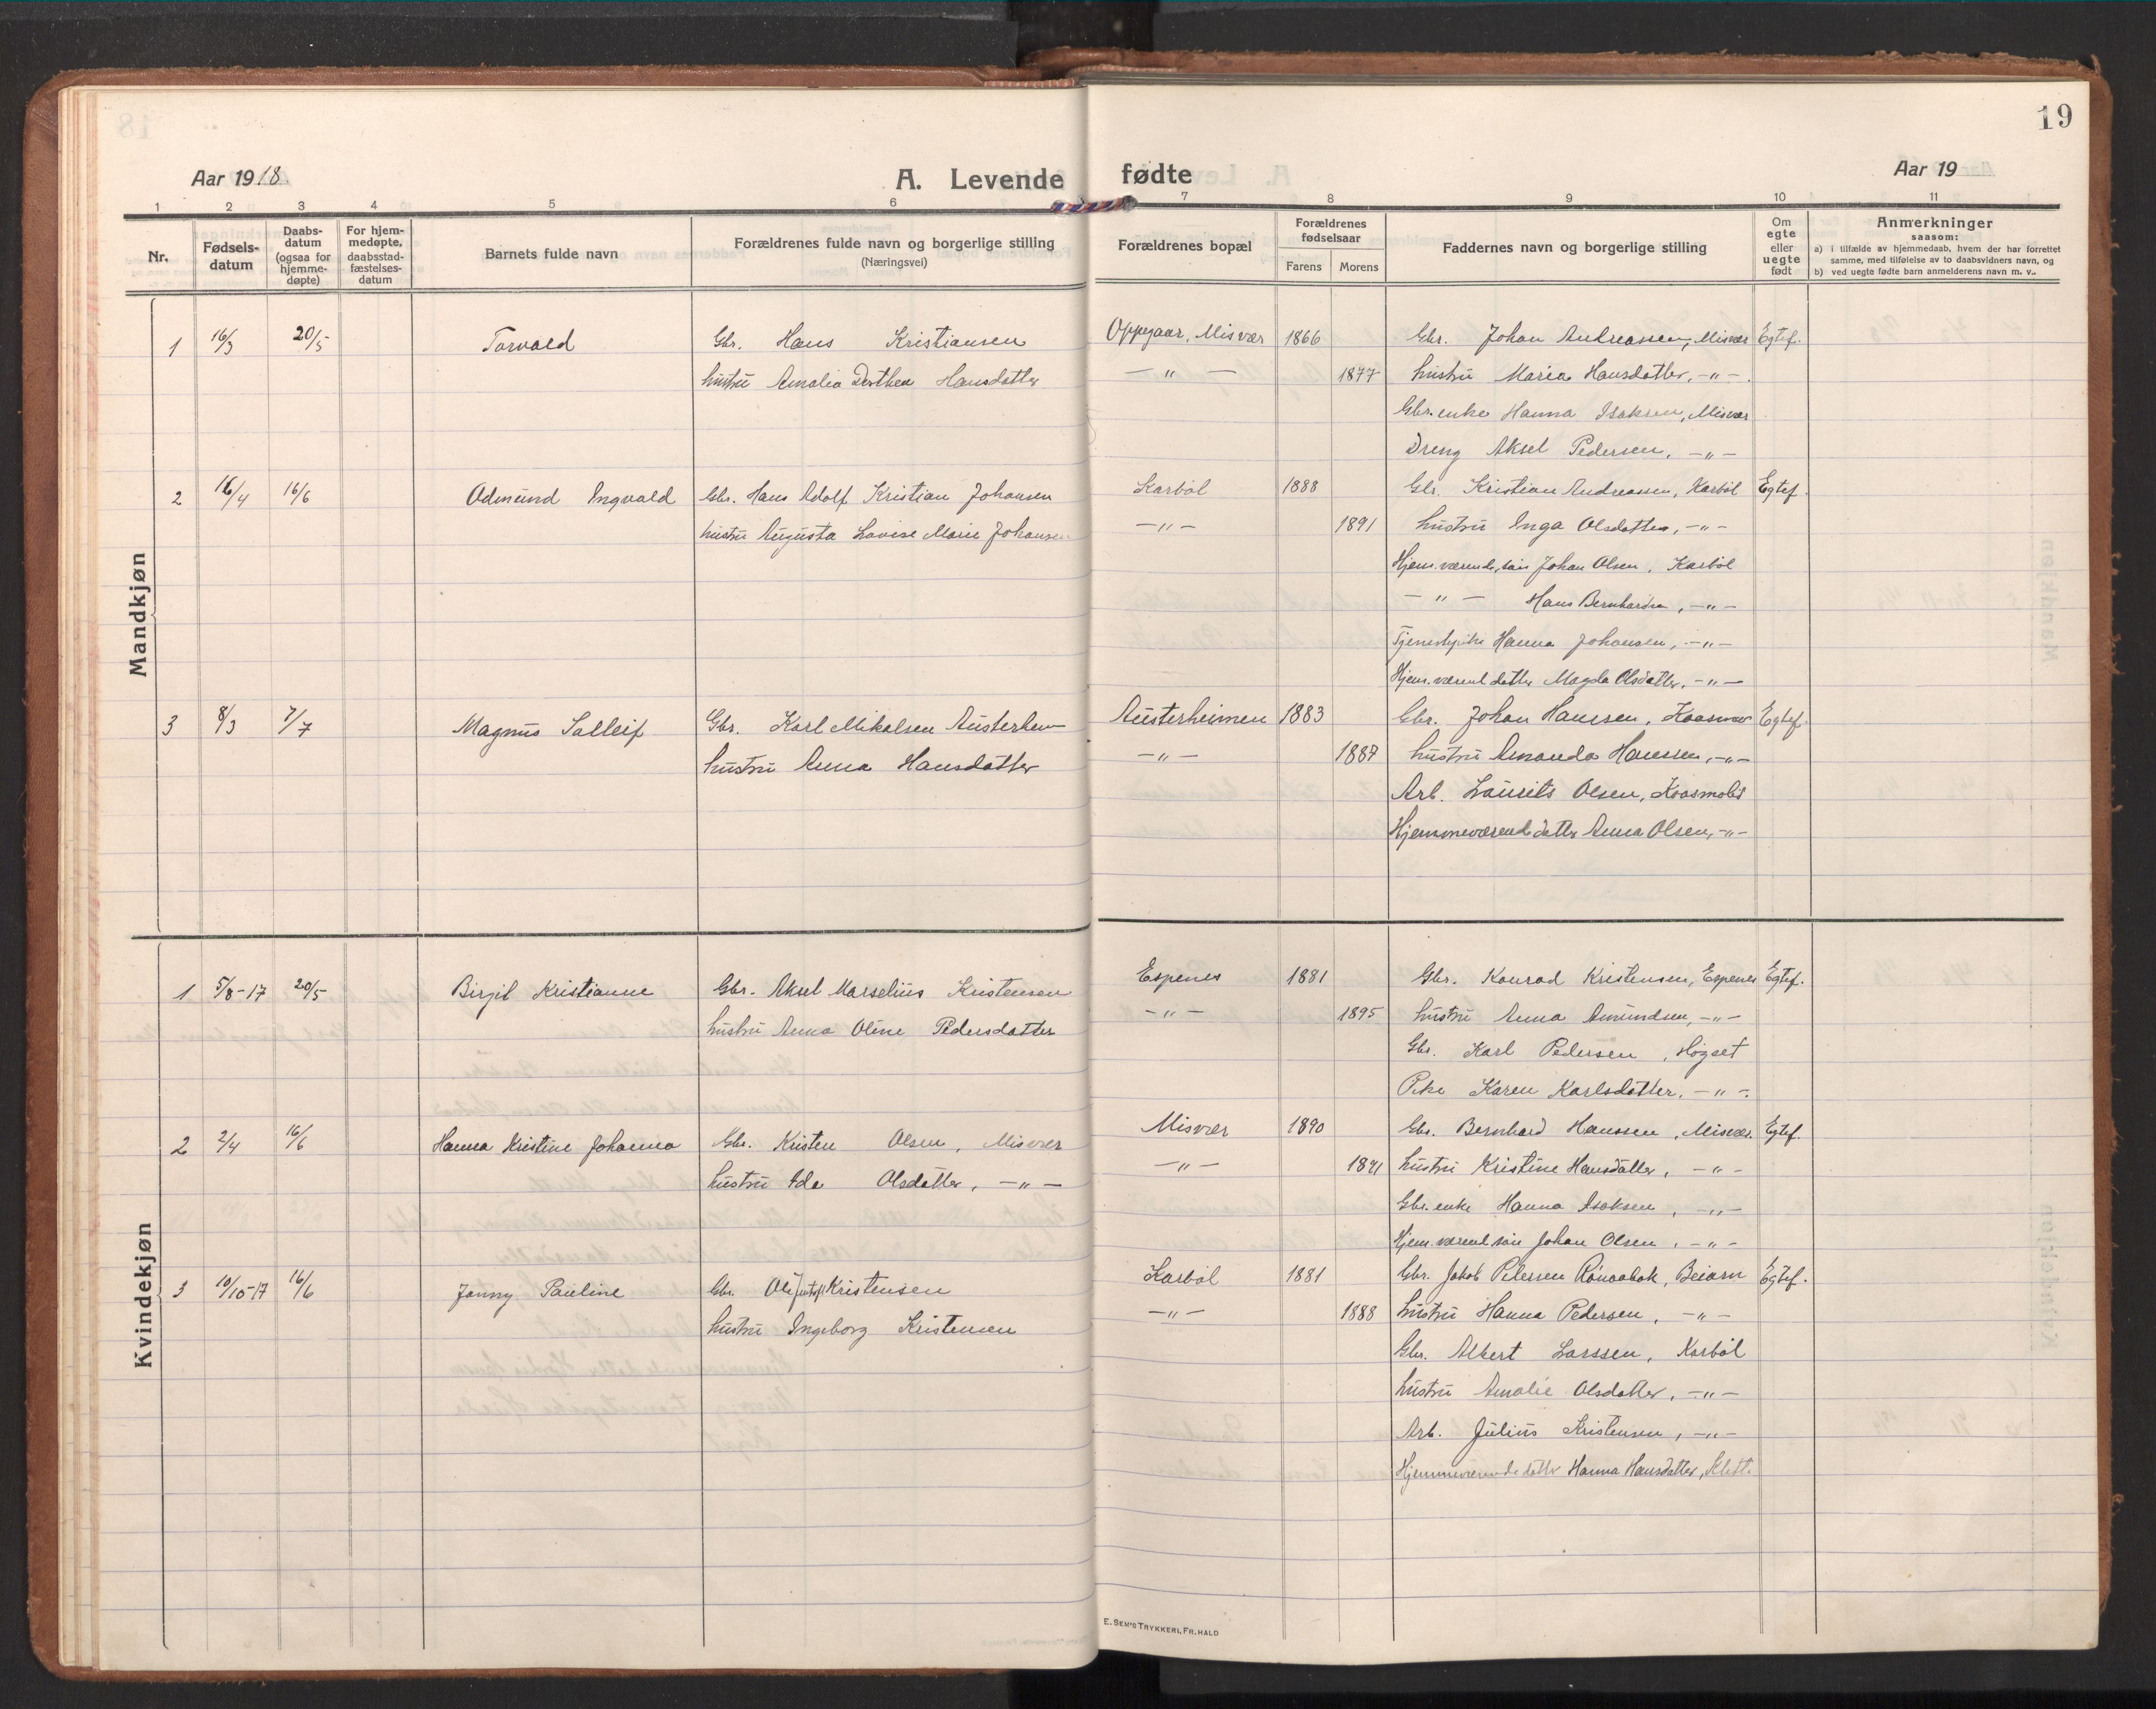 19
Aar 1918.
A. Levende fødte
Aar 19
1 2 3 4 5 6 7 8 9 10 11
Nr.
Fødsels-datum
Daabs-datum (ogsaa for hjemme-døpte)
For hjem-medøpte, daabsstad-fæstelses-datum
Barnets fulde navn
Forældrenes fulde navn og borgerlige stilling
(Næringsvei)
Forældrenes bopæl
Forældrenes fødselsaar
Farens Morens
Faddernes navn og borgerlige stilling
Om egte eller uegte født
Anmerkninger
saasom:
a) i tilfælde av hjemmedaab, hvem der har forrettet
samme, med tilføielse av to daabsvidners navn, og
b) ved uegte fødte barn anmelderens navn m. v..
Mandkjøn
1 16/3 20/5 Torvald Gbr. Hans Kristiansen Oppegaar, Misvær 1866 Gbr. Johan Andreassen, Misvær Egtef.
hustru Amalia Dorthea Hansdatter — " — 1877 hustru Maria Hansdatter, -"-.
Gbr. enke Hanna Isaksen, Misvær
Dreng Aksel Pedersen, -"-
2 16/4 16/6 Odmund Ingvald Gbr. Hans Adolf Kristian Johansen Karbøl 1888 Gbr. Kristian Andreassen, Karbøl Egtef.
hustru Augusta Lovise Marie Johansen -"- 1891 hustru Inga Olsdatter, -"-
Hjem. værende søn Johan Olsen, Karbøl
- " - Hans Bernhardsen, -"-
Tjenestepike Hanna Johansen, -"-
Hjem. værend datter Magda Olsdatter, -"-
3 8/3 7/7 Magnus Salleif Gbr. Karl Mikalsen Austerheim Austerheimen 1883 Gbr. Johan Hanssen, Egtef.
hustru Anna Hansdatter -"- 1887 hustru Amanda Hanssen, -"-
Arb. Lausits Olsen,
Hjemmeværend datter Anna Olsen, -"-
Kvindekjøn
1 5/8-17 20/5 Birgit Kristianne Gbr. Aksel Marselius Kristensen Espenes 1881 Gbr. Konrad Kristensen, Espenes Egtef.
hustru Anna Oline Pedersdatter -"- 1895 hustru Anna Amundsen, -"-
Gbr. Karl Pedersen, Høgset
Pike Karen Karlsdatter, -"-.
2 2/4 16/6 Hanna Kristine Johanna Gbr. Kristen Olsen, Misvær Misvær 1890 Gbr. Bernhard Hanssen, Misvær. Egtef.
hustru Ida Olsdatter, -"- -"- 1891 hustru Kristine Hansdatter, -"-
Gbr. enke Hanna Isaksen, -"-
Hjem. værend søn Johan Olsen, -"-
3 10/10-17 16/6 Jonny Pauline Gbr. Ole Kristensen Karbøl 1881 Gbr. Jakob Petersen Beiarn Egtef.
hustru Ingeborg Kristensen -"- 1888 hustru Hanna Pedersen, -"-
Gbr. Albert Larssen, Karbøl
hustru Amalie Olsdatter, -"-
Arb. Julius Kristensen, -"-
Hjemmeværende datter Hanna Hansdatter, Klett.
E. SEM'S TRYKKERI, FR.HALD